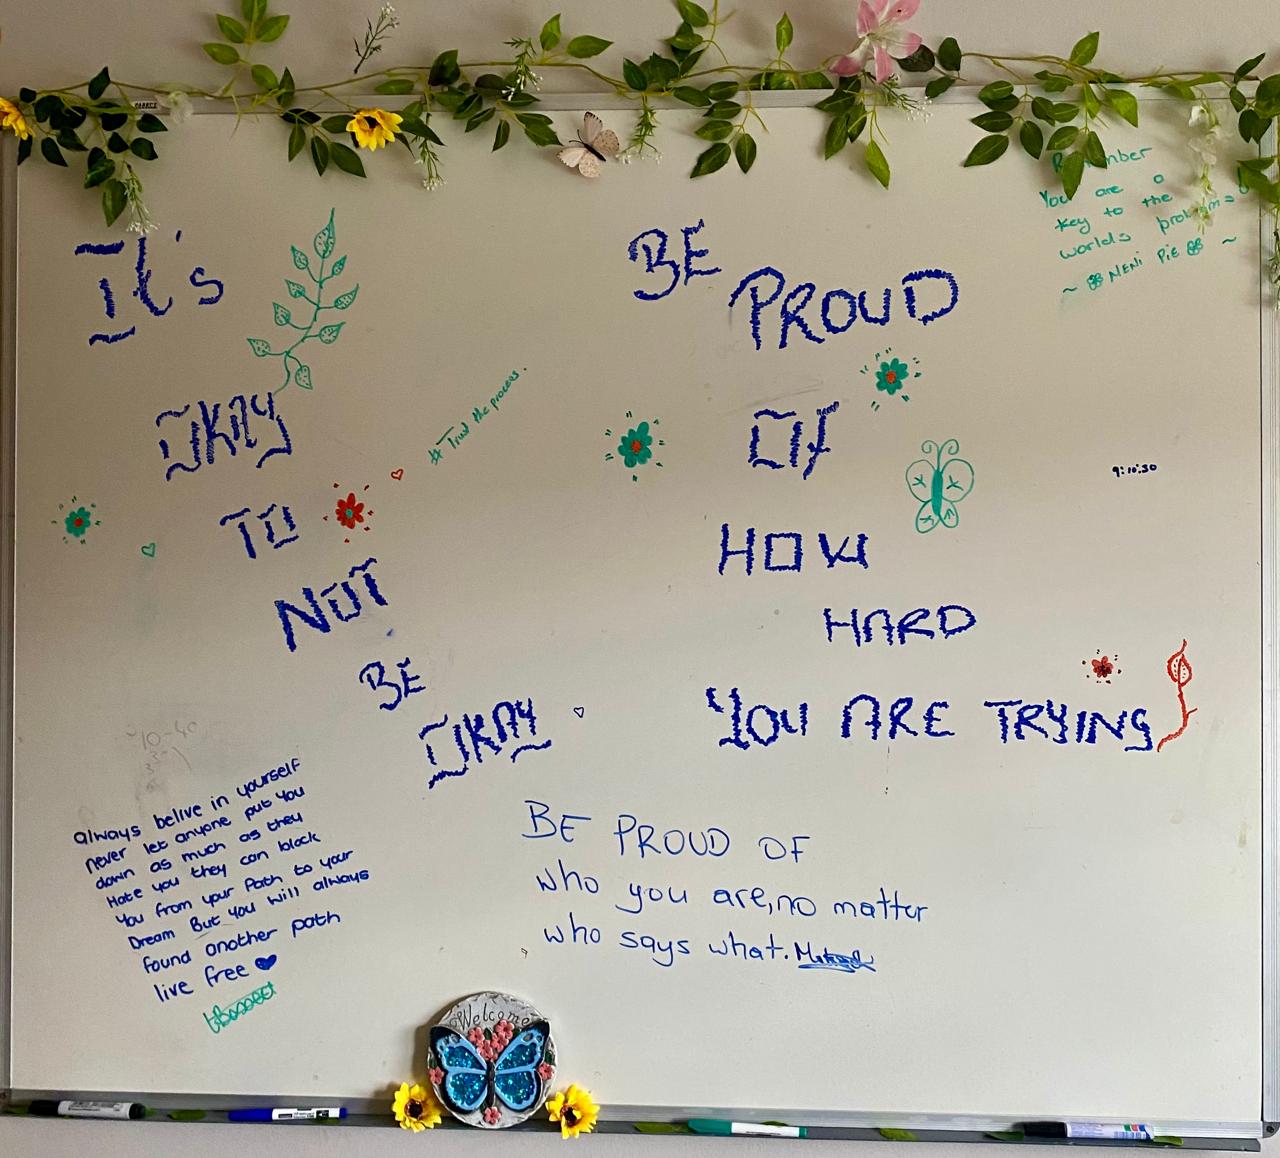 It's
OKAY
TO
NOT
BE
OKAY
# Trust the process.
BE
PROUD
OF
HOW
HARD
YOU ARE TRYING
Remember
You are a
key to the
worlds problems
~ NENi PiE ~
9:10:30
10-40
always belive in yourself
never let anyone put you
down as much as they
Hate you they can block
you from your Path to your
Dream But you will always
found another path
live free
BE PROUD OF
who you are, no matter
who says what.
Welcome